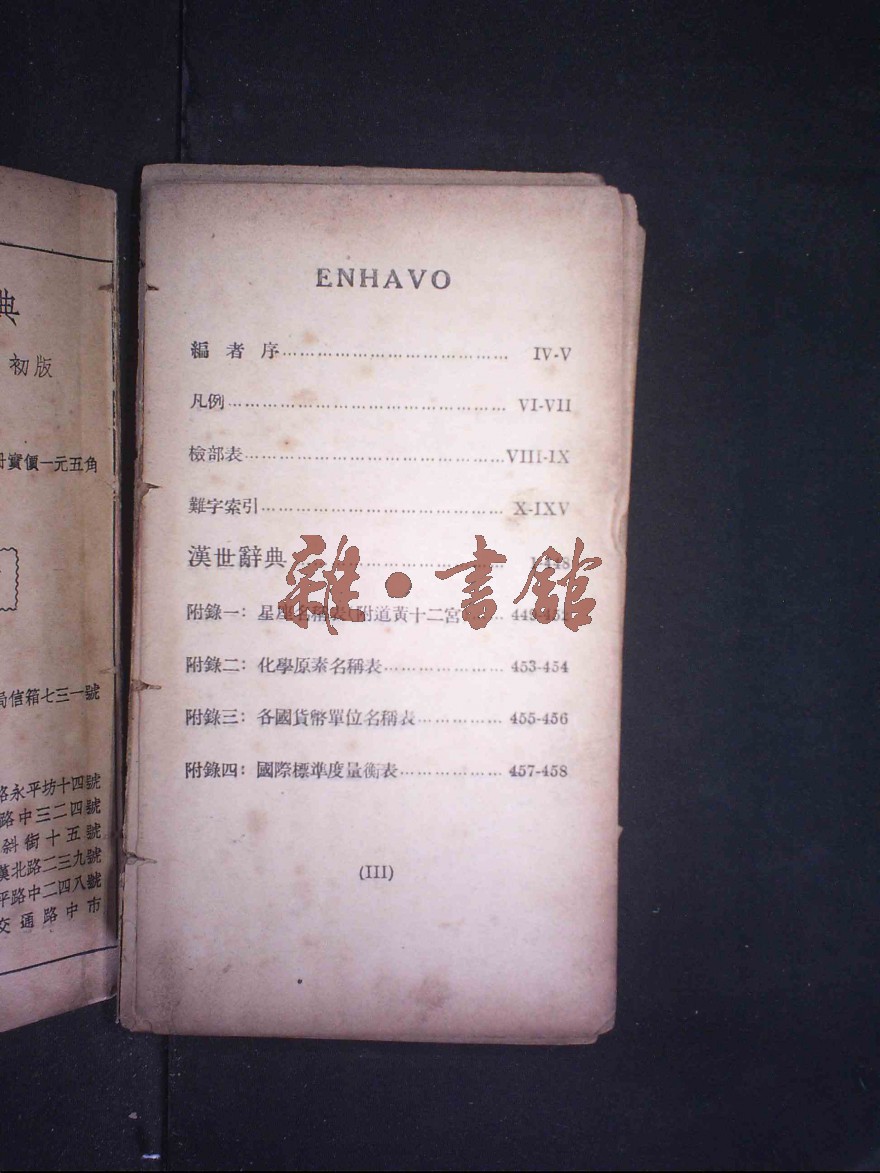 典
初版
實價一元五角
局信箱七三一號
路永平坊十四號
路中三二四號
斜街十五號
漢北路二三九號
平路中二四八號
交通路中市
ENHAVO
編者序……………………………… IV-V
凡例……………………………… VI-VII
檢部表………………………………VIII-IX
難字索引……………………………… X-IXV
漢世辭典……………………… 1-448
附錄一：星座名稱表(附道黃十二宮 …… 449-452
附錄二：化學原素名稱表…………… 453-454
附錄三：各國貨幣單位名稱表………… 455-456
附錄四：國際標準度量衡表…………… 457-458
(III)
雜·書館